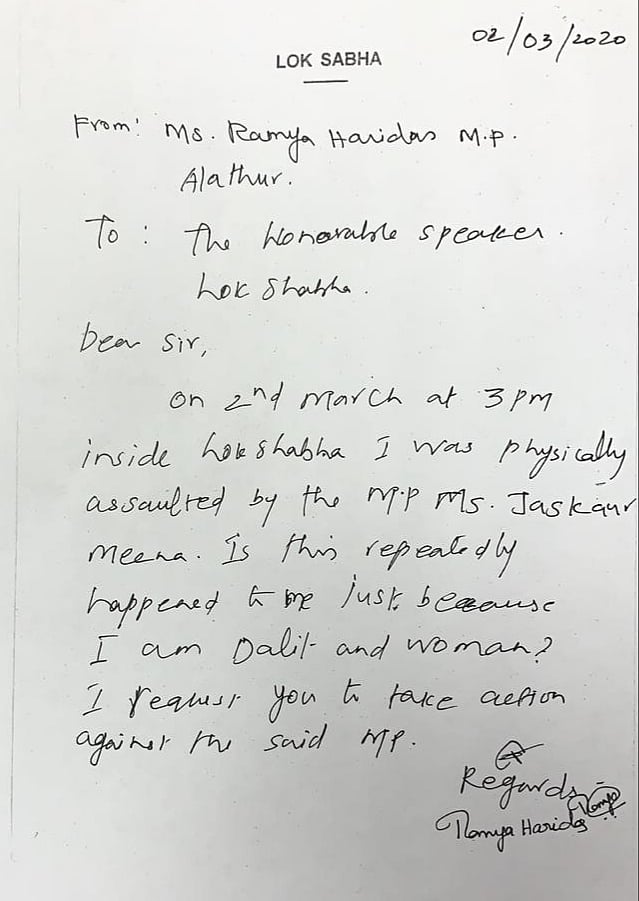 02/03/2020
LOK SABHA
From: Ms. Ramya Haridas M.P.
Alathur.
To : The Honorable speaker.
Lok Shabha.
Dear Sir,
On 2nd March at 3 pm
inside Lok Shabha I was physically
assaulted by the M.P Ms. Jaskaur
Meena. Is this repeatedly
happened to me just because
I am Dalit and woman?
I request you to take action
against the said MP.
Regards
Ramya Haridas